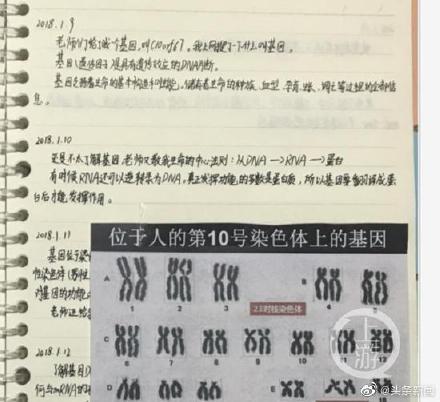 2018.1.9
老师们给了我个基因,叫C10orf67。我上网搜了一下什么叫基因。
基因(遗传因子)是具有遗传效应的DNA片断。
基因支持着生命的基本构造和性能。储存着生命的种族、血型、孕育、生长、凋亡等过程的全部信
息。
2018.1.10
还是不太了解基因,老师又教我生命的中心法则:从DNA→RNA→蛋白
有时候RNA还可以逆转录为DNA,真正发挥功能的多数是蛋白质,所以基因要翻译成蛋
白后才能发挥作用。
2018.1.11
基因位于染
性染色体(男性
对基因的功能
老师还给
2018.1.12
了解基因
何与mRNA的
位于人的第10号染色体上的基因
A
B
1
2
3
23对核染色体
4
5
C
6
7
8
9
10
11
12
D
E
上游
头条新闻